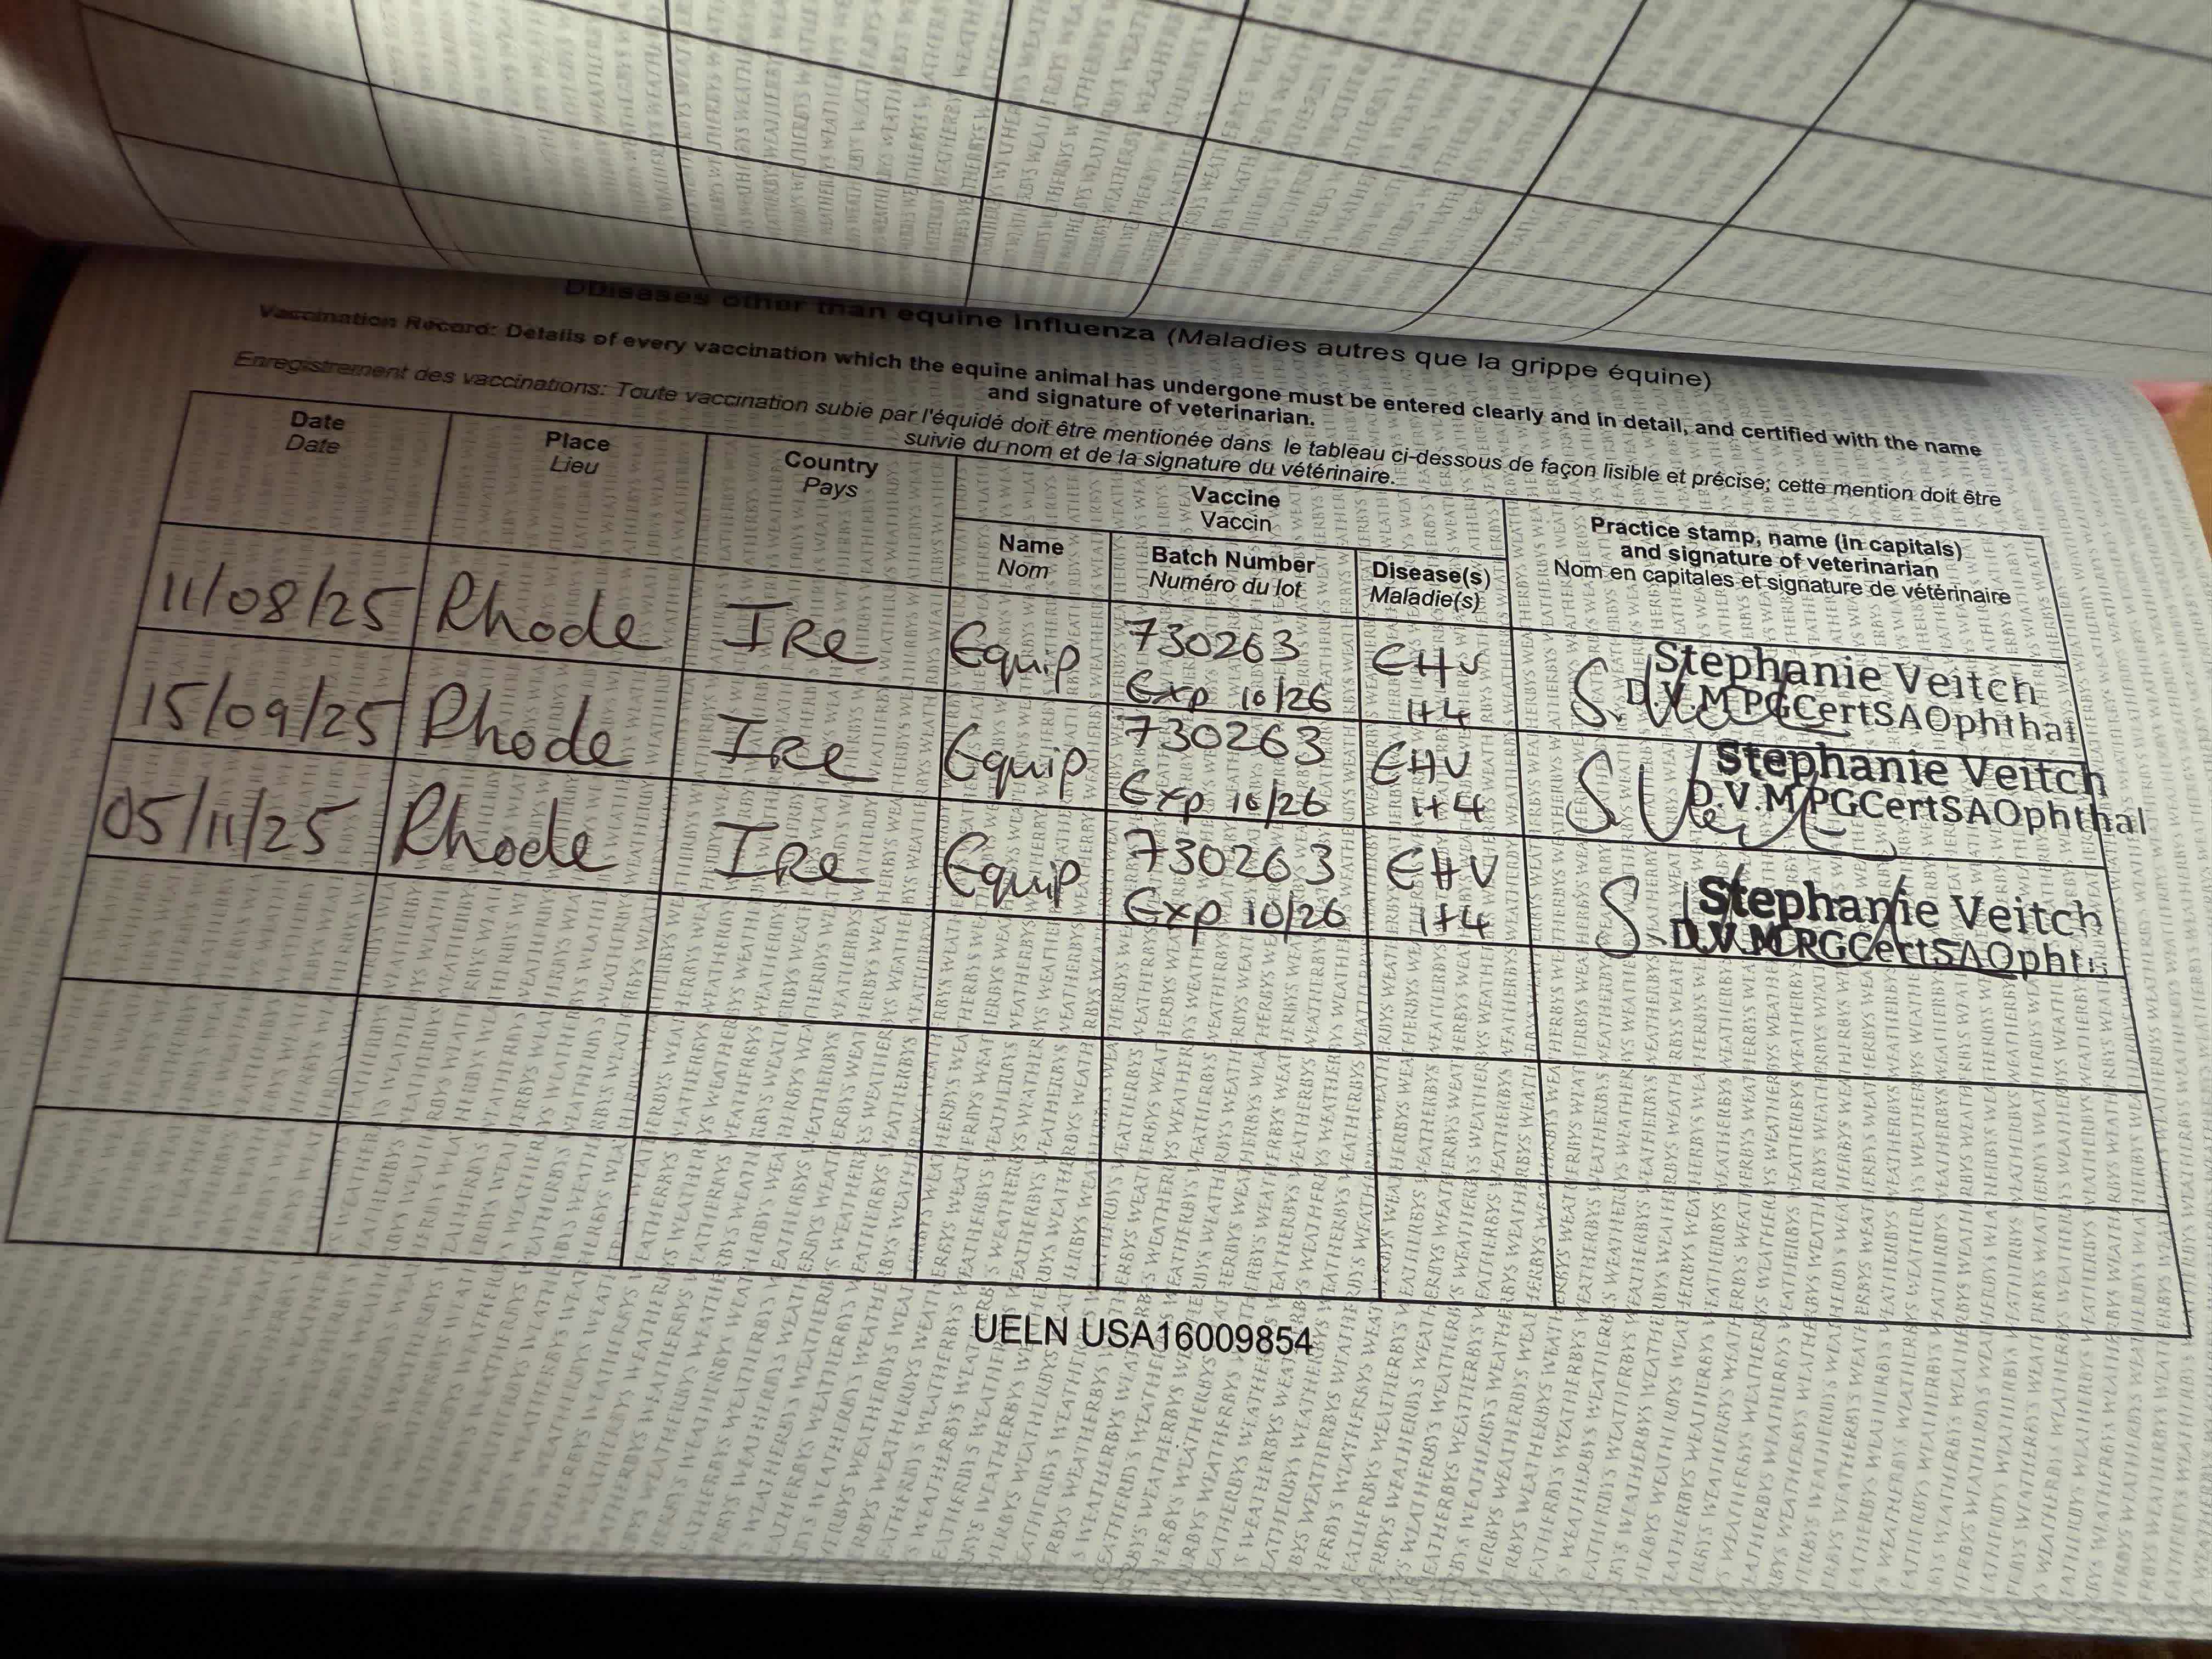 DDiseases other than equine influenza (Maladies autres que la grippe équine)
Vaccination Record: Details of every vaccination which the equine animal has undergone must be entered clearly and in detail, and certified with the name
and signature of veterinarian.
Enregistrement des vaccinations: Toute vaccination subie par l'équidé doit être mentionée dans le tableau ci-dessous de façon lisible et précise; cette mention doit être
suivie du nom et de la signature du vétérinaire.
Date
Date
Place
Lieu
Country
Pays
Vaccine
Vaccin
Name
Nom
Batch Number
Numéro du lot
Disease(s)
Maladie(s)
Practice stamp, name (in capitals)
and signature of veterinarian
Nom en capitales et signature de vétérinaire
11/08/25 Rhode IRe Equip 730263 EHV
Exp 10/26 1+4
Stephanie Veitch
D.V.M PGCertSAOphthal
15/09/25 Rhode IRe Equip 730263 EHV
Exp 10/26 1+4
Stephanie Veitch
D.V.M PGCertSAOphthal
05/11/25 Rhode IRe Equip 730263 EHV
Exp 10/26 1+4
Stephanie Veitch
UELN USA16009854